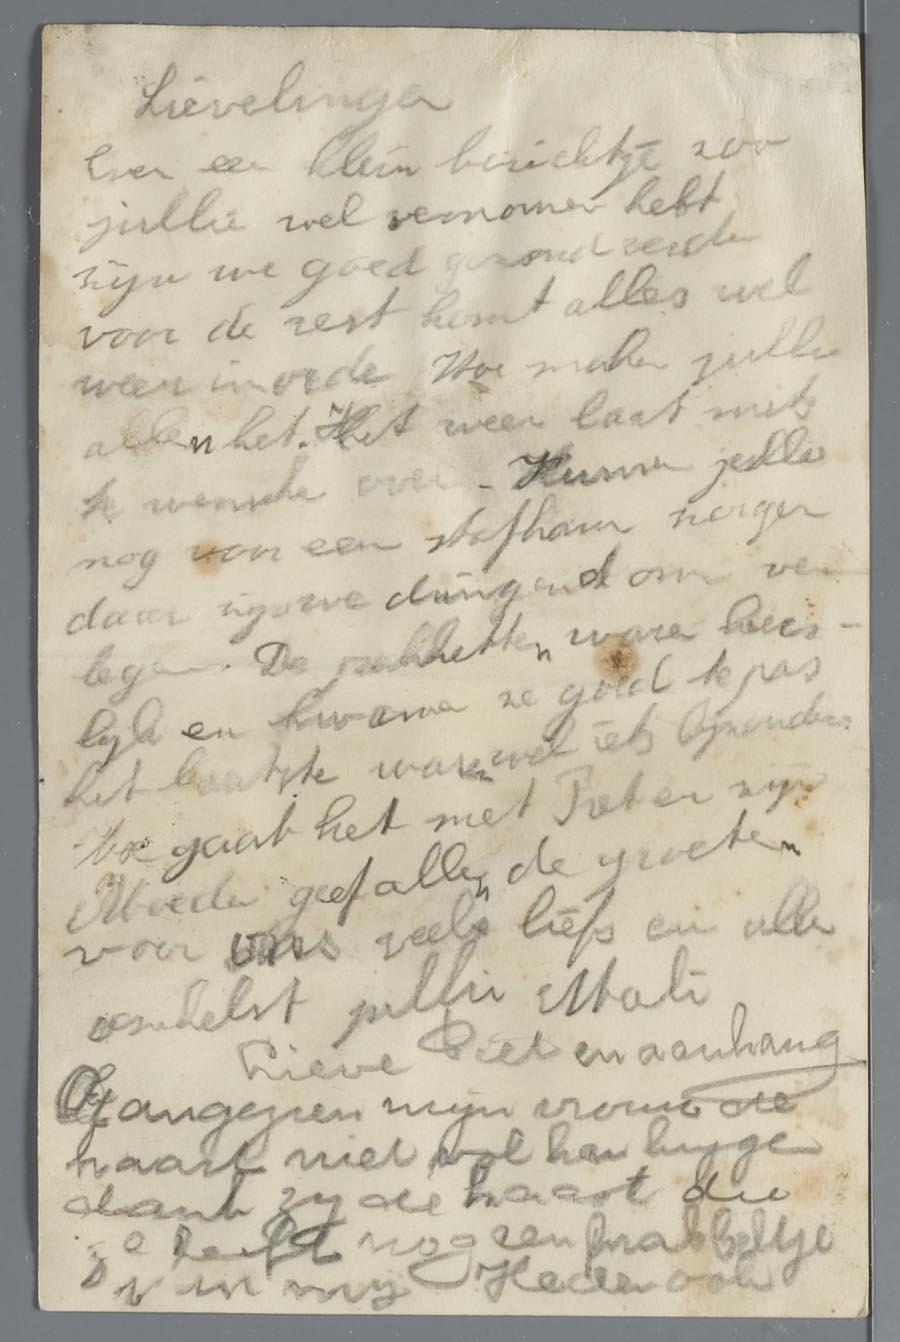 Lievelingen
Even een klein berichtje zoo
jullie wel vernomen hebt
zijn we goed gezond verder
voor de rest komt alles wel
weer in orde Hoe maken jullie
allen het. Het weer laat niets
te wensche over. Kunnen jullie
nog voor een stofkam zorgen
daar zijn we dringend om ver
legen. De pakketten waren heer-
lijk en kwamen ze goed te pas
het laatste waren wel iets bijzonders
Hoe gaat het met Piet en zijn
Moeder geef allen de groeten
voor ons veels liefs en alle
omhelst jullie Mali
Lieve Piet en aanhang
Aangezien mijn vrouw de
kaart niet vol kan krijgen
dank zij de kaart die
ze heeft nog een krabbeltje
v m mij Heden ook